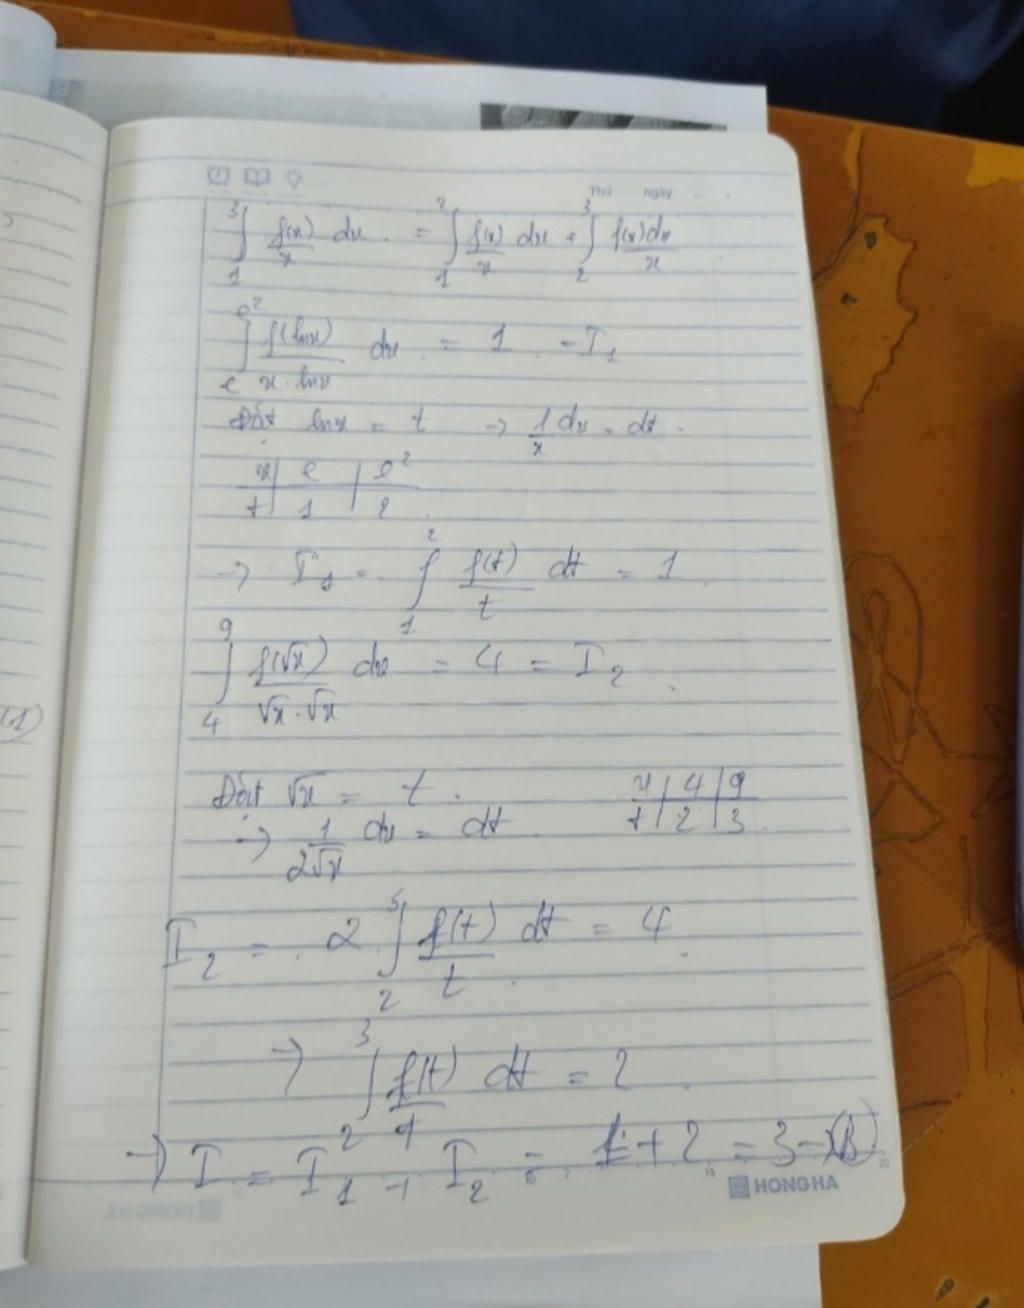 Thứ ngày
∫₁³ f(x)/x dx = ∫₁² f(x)/x dx + ∫₂³ f(x)dx/x
∫ₑ^e² f(lnx)/(x.lnx) dx = 1 = I₁
Đặt lnx = t → 1/x dx = dt
x | e | e²
t | 1 | 2
→ I₁ = ∫₁² f(t)/t dt = 1
∫₄⁹ f(√x)/(√x.√x) dx = 4 = I₂
(1)
Đặt √x = t. x | 4 | 9
→ 1/(2√x) dx = dt t | 2 | 3
I₂ = 2 ∫₂³ f(t)/t dt = 4
→ ∫₂³ f(t)/t dt = 2
→ I = I₁ + I₂ = 1 + 2 = 3 → B
HONG HA